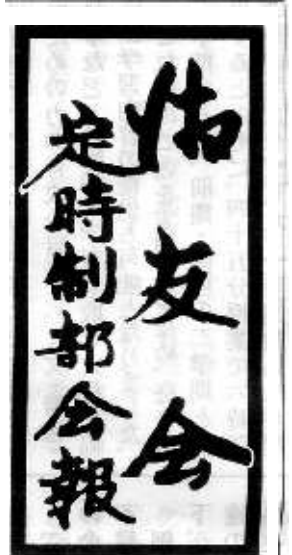 友会
定時制部会報